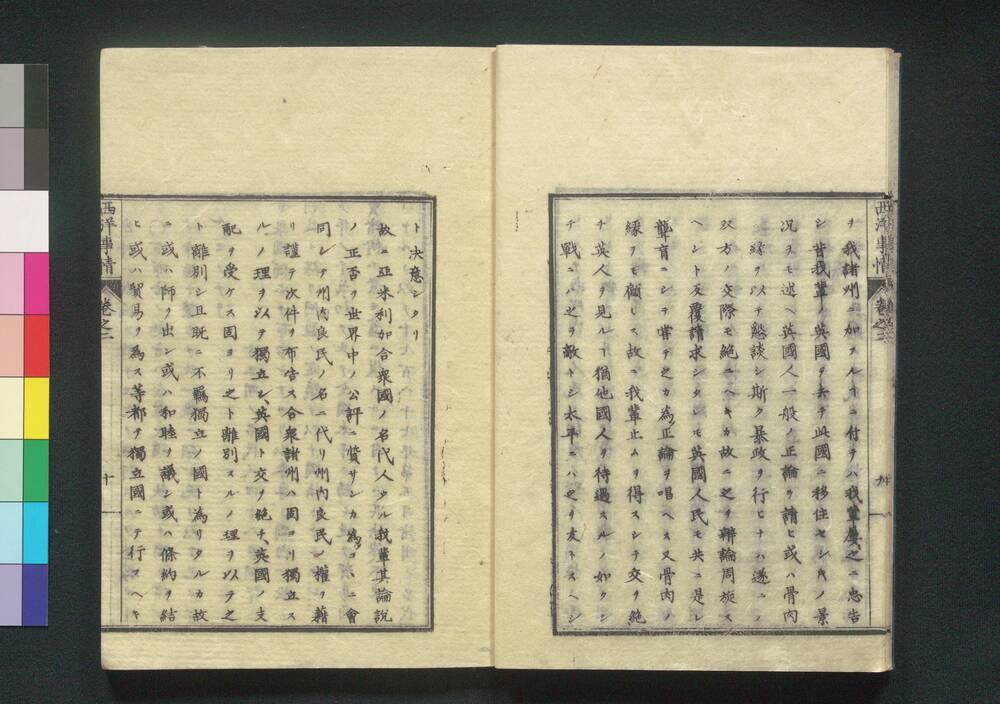 ヲ我諸州ニ加フルヿニ付テハ我輩屢之ニ忠告
シ昔我輩ノ英國ヲ去テ此國ニ移住セシキノ景
況ヲモ述ヘ英國人一般ノ正論ヲ請ヒ或ハ骨肉
ノ縁ヲ以テ懇談シ斯ク暴政ヲ行ヒナハ遂ニハ
双方ノ交際モ絶ユヘキカ故ニ之ヲ辯論周旋ス
ヘシト反覆請求シタレモ英國人民モ共ニ是レ
聾盲ニシテ嘗テ之カ為メ正論ヲ唱ヘス又骨肉ノ
縁ヲモ顧ミス故ニ我輩止ムヲ得スシテ交ヲ絶
チ英人ヲ見ルヿ猶他國人ヲ待遇スルノ如クシ
テ戰ニハ之ヲ敵トシ太平ニハ之ヲ友トスヘシ
西洋事情
卷之二
九
ト決意シタリ
故ニ亞米利加合衆國ノ名代人タル我輩其論說
ノ正否ヲ世界中ノ公評ニ質サンカ為メコヽニ會
同シテ州內良民ノ名ニ代リ州內良民ノ權ヲ藉
リ謹テ次件ヲ布告ス合衆諸州ハ固ヨリ獨立ス
ルノ理ヲ以テ獨立シ英國ト交ヲ絶チ英國ノ支
配ヲ受ケス固ヨリ之ト離別スルノ理ヲ以テ之
ト離別シ且既ニ不羈獨立ノ國ト為リタルカ故
ニ或ハ師ヲ出シ或ハ和睦ヲ議シ或ハ條約ヲ結
ヒ或ハ貿易ヲ為ス等都テ獨立國ニテ行スヘキ
西洋事情
卷之二
十